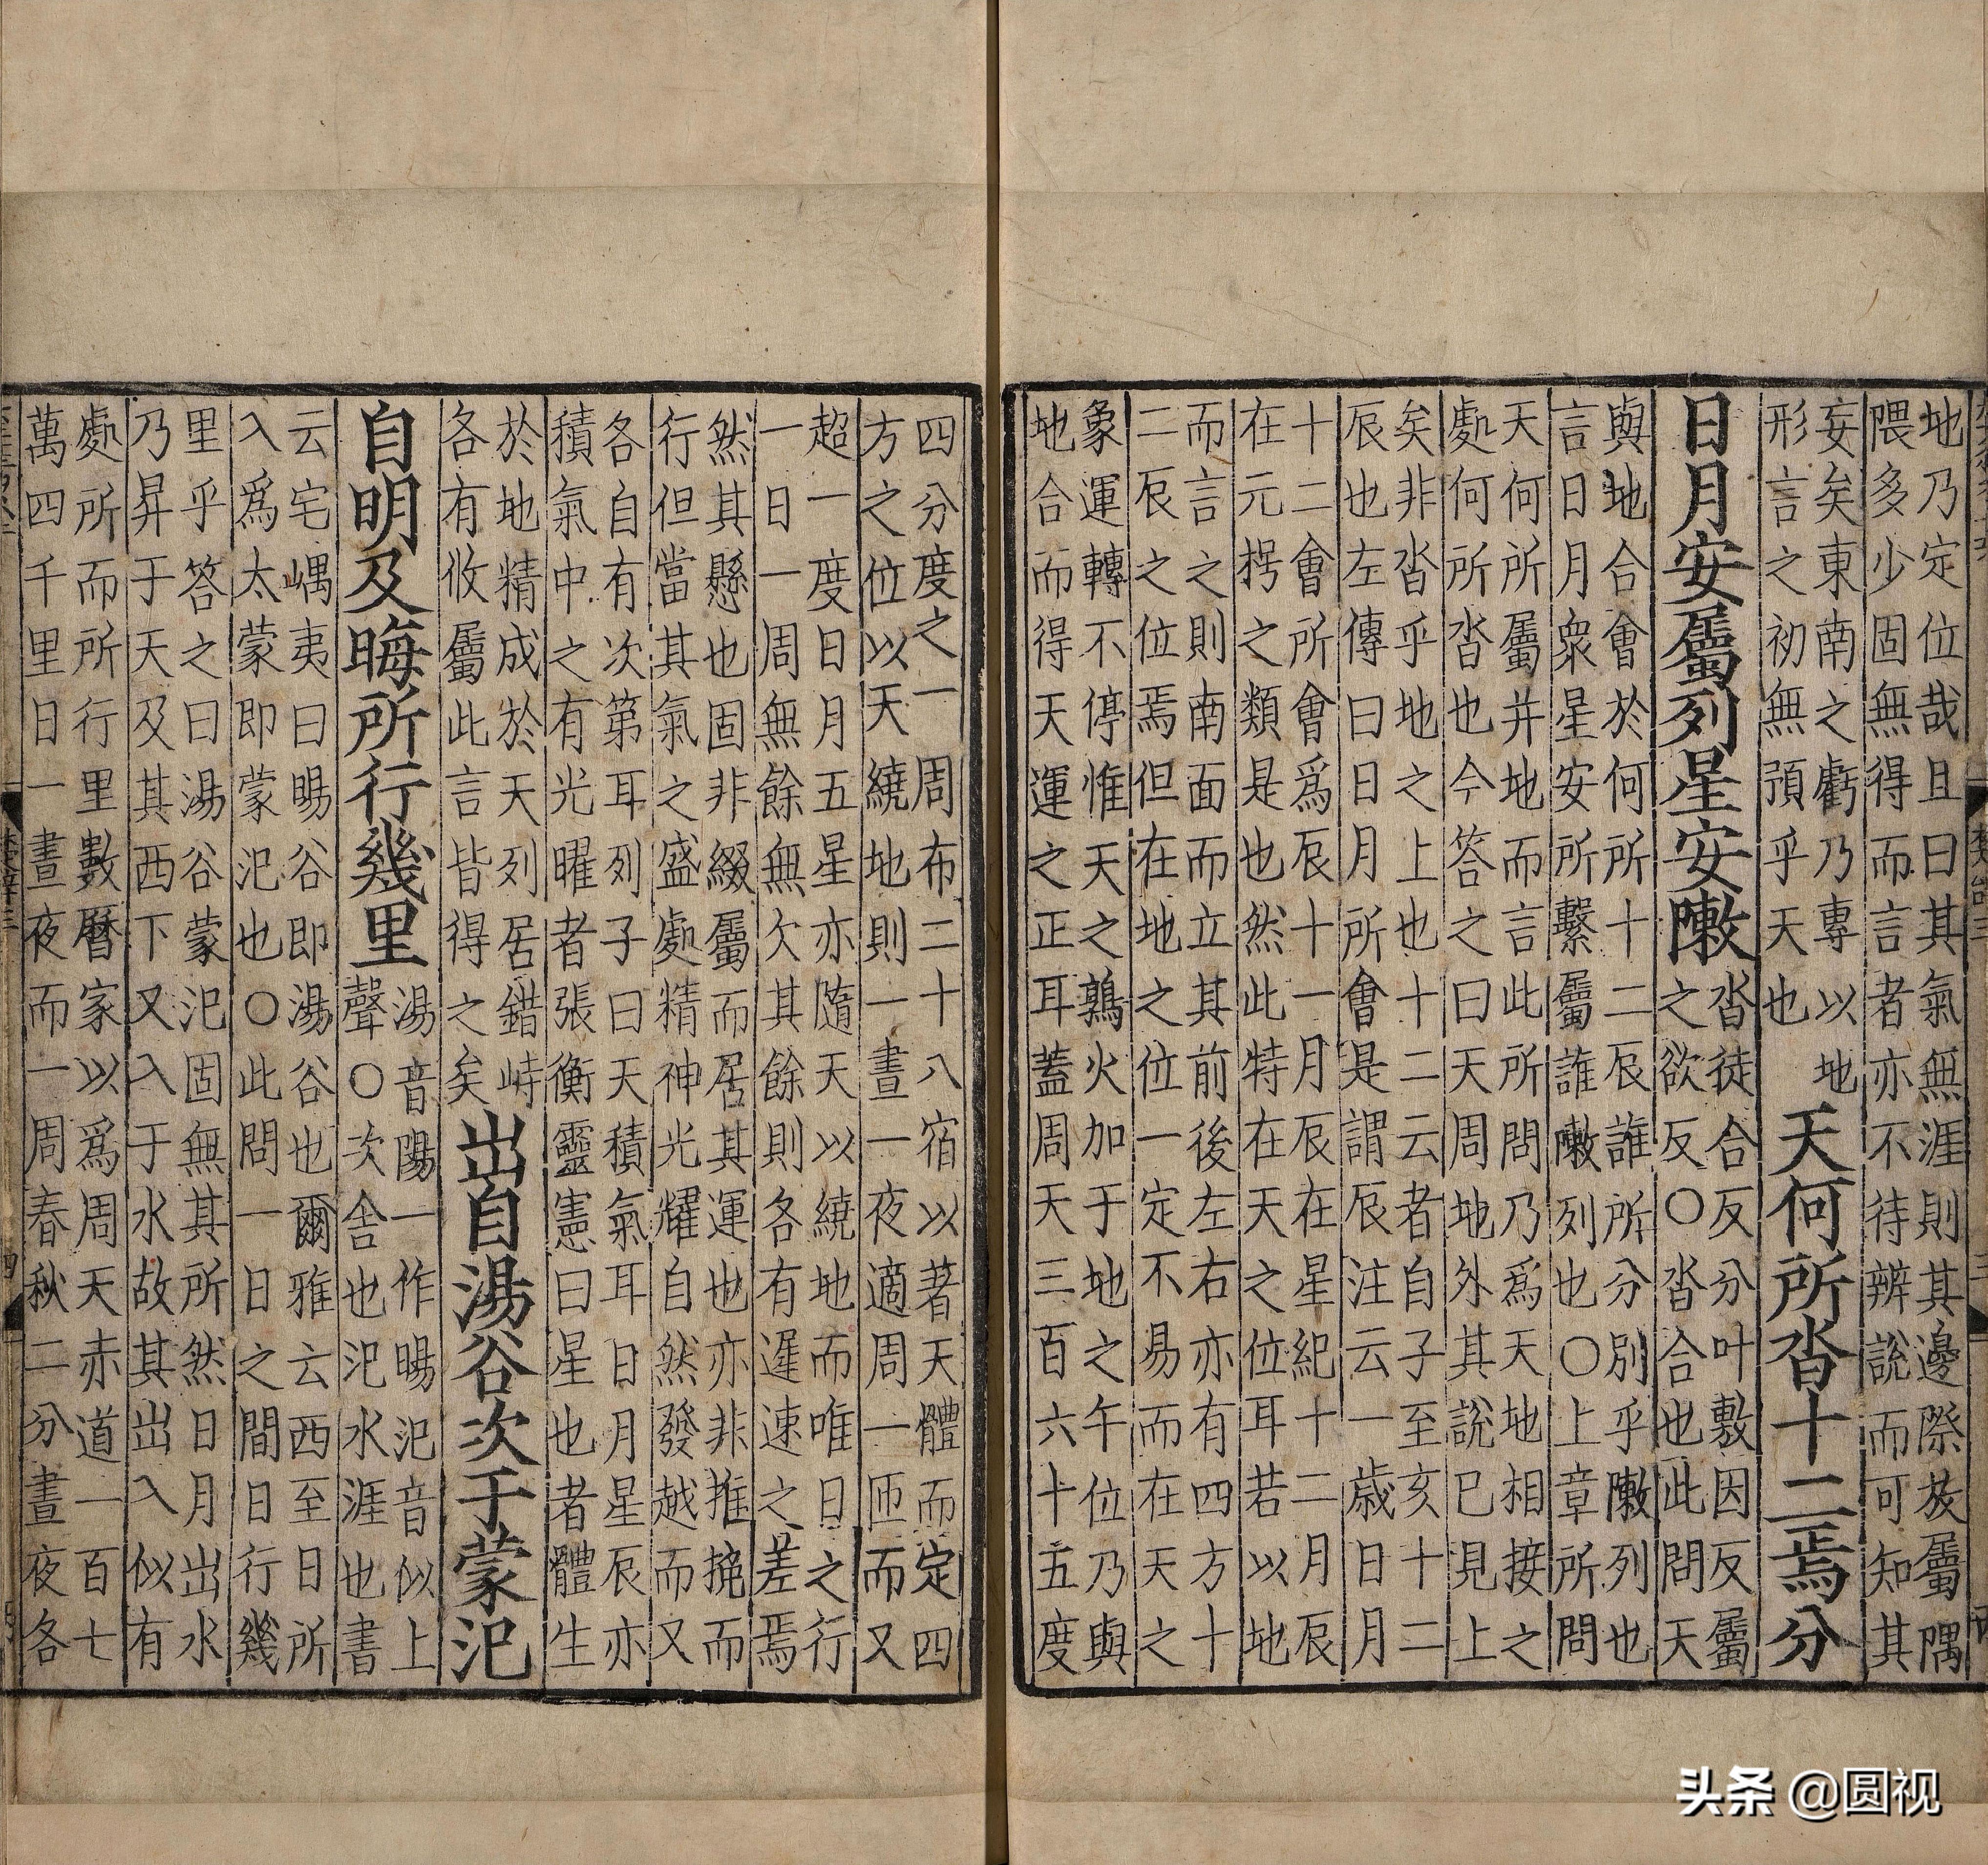 地乃定位哉且曰其氣無涯則其邊際放屬隅
隈多少固無得而言者亦不待辨說而可知其
妄矣東南之虧乃專以地
形言之初無預乎天也
天何所沓十二焉分
日月安屬列星安敶
沓徒合反分叶敷因反屬
之欲反〇沓合也此問天
與地合會於何所十二辰誰所分別乎敶列也
言日月衆星安所繫屬誰敶列也〇上章所問
天何所屬并地而言此所問乃爲天地相接之
處何所沓也今答之曰天周地外其說已見上
矣非沓乎地之上也十二云者自子至亥十二
辰也左傳曰日月所會是謂辰注云一歳日月
十二會所會爲辰十一月辰在星紀十二月辰
在元枵之類是也然此特在天之位耳若以地
而言之則南面而立其前後左右亦有四方十
二辰之位焉但在地之位一定不易而在天之
象運轉不停惟天之鶉火加于地之午位乃與
地合而得天運之正耳蓋周天三百六十五度
四分度之一周布二十八宿以著天體而定四
方之位以天繞地則一晝一夜適周一匝而又
超一度日月五星亦隨天以繞地而唯日之行
一日一周無餘無欠其餘則各有遲速之差焉
然其懸也固非綴屬而居其運也亦非推挽而
行但當其氣之盛處精神光耀自然發越而又
各自有次第耳列子曰天積氣耳日月星辰亦
積氣中之有光曜者張衡靈憲曰星也者體生
於地精成於天列居錯峙
各有攸屬此言皆得之矣
出自湯谷次于蒙汜
自明及晦所行幾里
湯音陽一作暘汜音似上
聲〇次舍也汜水涯也書
云宅嵎夷曰暘谷即湯谷也爾雅云西至日所
入爲太蒙即蒙汜也〇此問一日之間日行幾
里乎答之曰湯谷蒙汜固無其所然日月出水
乃昇于天及其西下又入于水故其出入似有
處所而所行里數曆家以爲周天赤道一百七
萬四千里日一晝夜而一周春秋二分晝夜各
头条 @圆视